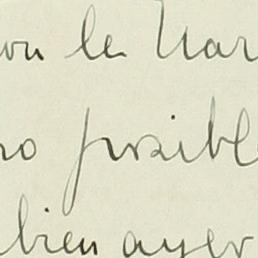 on le Nar
no posible
bien ayer